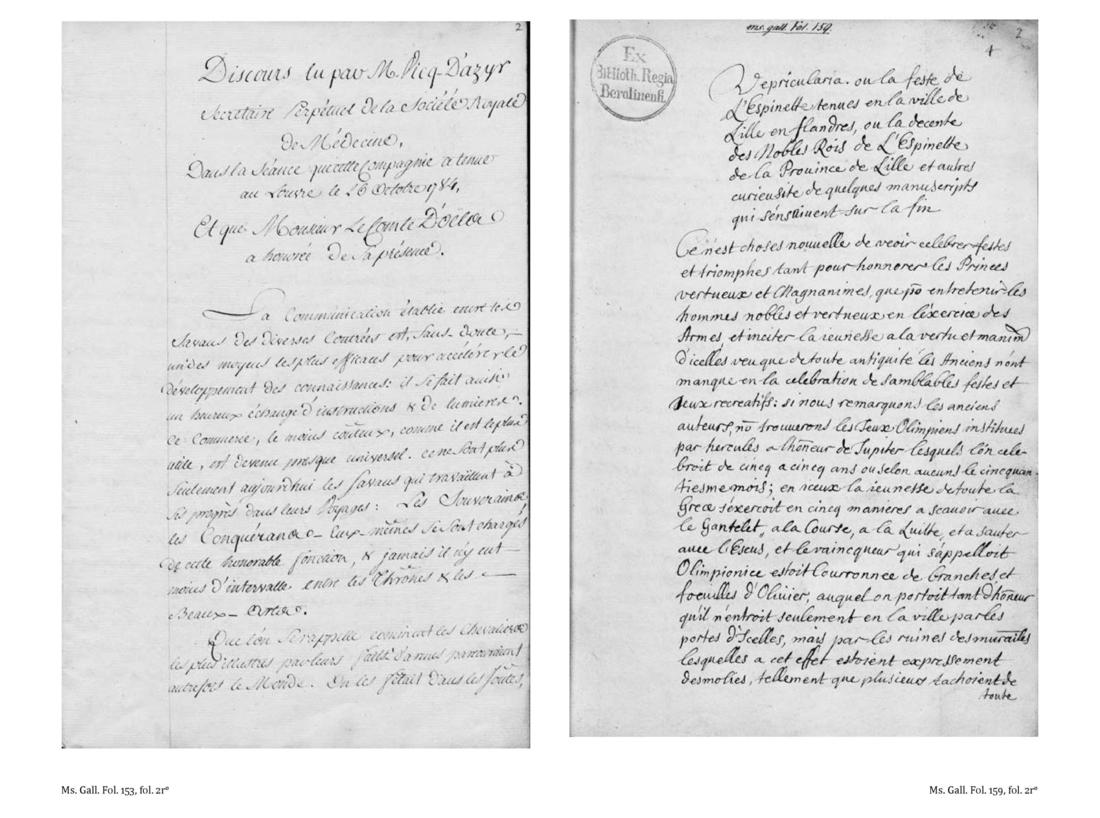 2
Discours lu par M. Vicq-D'azyr
Secretaire Perpétuel de la Société Royale
de Médecine,
Dans la Séance que cette Compagnie a tenue
au Louvre le 26 Octobre 1784,
Et que Monsieur Le Comte D'oëlse
a honorée de Sa présence.
La Communication établie entre les
Savans des diverses Contrées est, sans doute,
un des moyens les plus efficaces pour accélérer le
développement des connaissances: il se fait ainsi
un heureux échange d'instructions & de lumieres.
Ce Commerce, le moins coûteux, comme il est le plus
utile, est devenu presque universel. ce ne sont plus
seulement aujourd'hui les Savans qui travaillent à
ses progrès dans leurs Voyages: Les Souverains
les Conquérans- Eux-mêmes se sont chargés
de cette honorable fonction, & jamais il n'y eut
moins d'intervalle entre les Thrônes & les
Beaux-Arts.
Que l'on se rappelle comment les Chevaliers
les plus illustres par leurs faits d'armes parcouraient
autrefois le Monde. On les fêtait dans les Joutes,
Ms. Gall. Fol. 153, fol. 2rº
ms. gall. Fol. 159.
2
4
Ex
Biblioth. Regia
Berolinensi.
Vepricularia. ou la feste de
L'Espinette tenues en la ville de
Lille en flandres, ou la decente
des Nobles Rois de L'Espinette
de la Prouince de Lille et autres
curieusite de quelques manuscripts
qui sensuiuent sur la fin
Ce n'est choses nouuelle de veoir celebrer festes
et triomphes tant pour honnorer les Princes
vertueux et Magnanimes, que po entretenir les
hommes nobles et vertueux en l'exercice des
Armes, et inciter la ieunesse a la vertu et manim
d'icelles veu que de toute antiquité les Anciens n'ont
manque en la celebration de samblables festes et
Jeux recreatifs: si nous remarquons les anciens
auteurs, no trouuerons les Jeux Olimpiens instituees
par hercules a lhoneur de Jupiter lesquels l'on cele-
broit de cincq a cincq ans ou selon aucuns le cincquan-
tiesme mois; en iceux la ieunesse de toute la
Grece s'exercoit en cincq manieres a scauoir auec
le Gantelet, a la Course, a la Luitte, et a sauter
auec l'Escus, et le vaincqueur qui s'appelloit
Olimpionice estoit Courronnee de branches et
foeuilles d'Oliuier, auquel on portoit tant d'honeur
qu'il n'entroit seulement en la ville par les
portes d'Icelles, mais par les ruines des murailles
lesquelles a cet effet estoient expressement
desmolies, tellement que plusieurs tachoient de
toute
Ms. Gall. Fol. 159, fol. 2rº